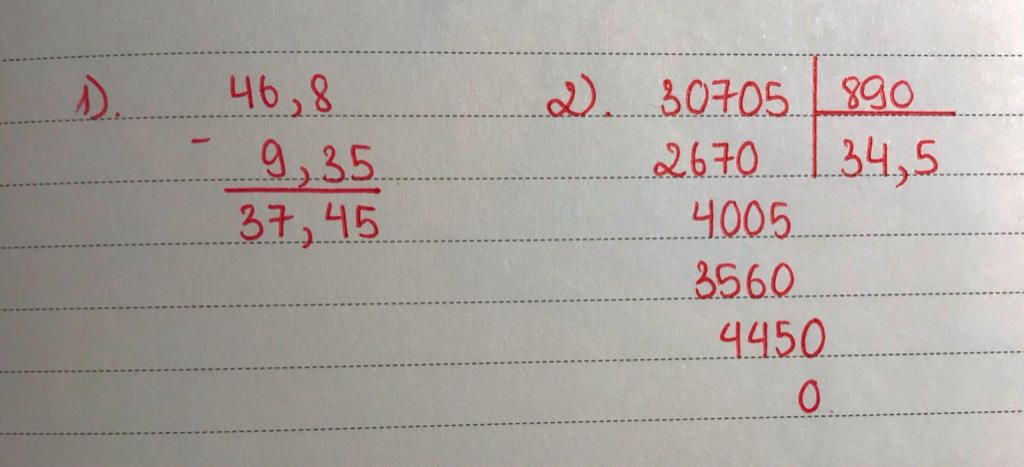 1). 46,8
- 9,35
37,45
2). 30705 890
2670 34,5
4005
3560
4450
0